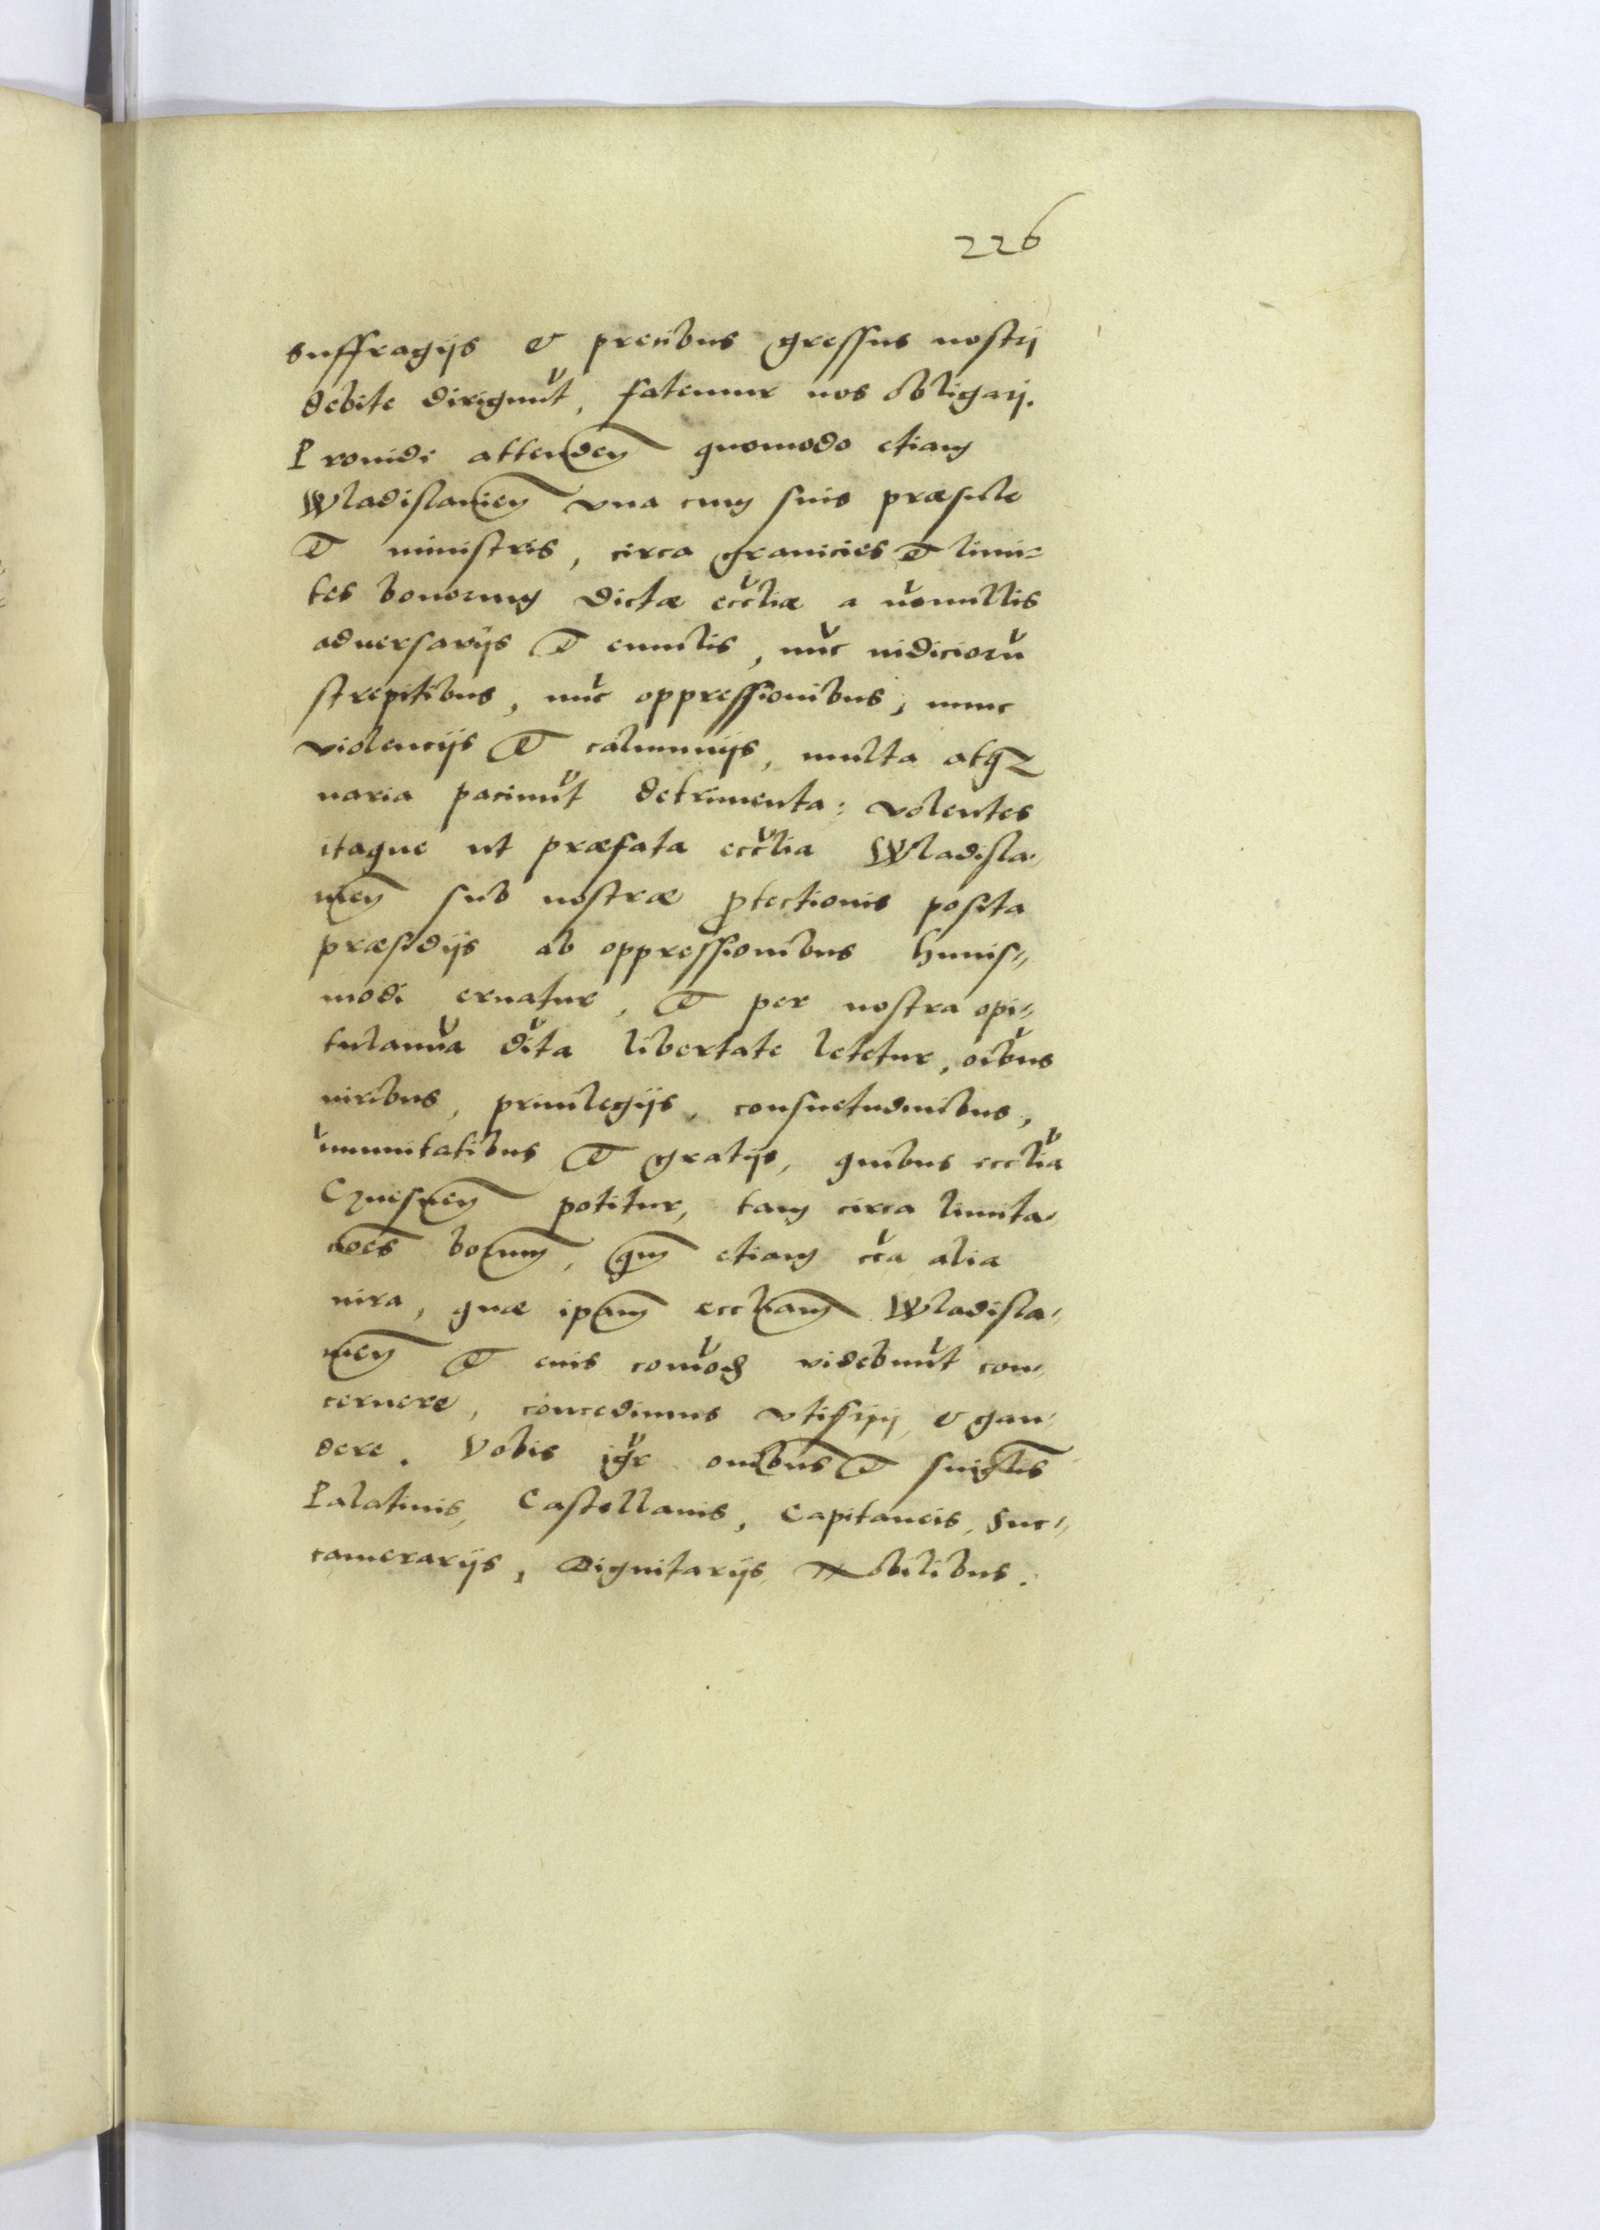 226
suffragijs & precibus gressus nostrj
debite dirigunt̆, fatemur nos obligarj.
Prouidi attenden̄ quomodo etiam
Wladislauien̄ vna cum suis præsule
& ministris, circa granicies & limi-
tes bonorum dictæ eccl̆iæ a nŏnullis
aduersarijs & emulis, nŭc iudiciorŭ
strepitibus, nŭc oppressionibus, nunc
violencijs & calumnijs, multa atq̄
uaria paciunt̆ detrimenta: volentes
itaque ut præfata eccl̆ia Wladisla-
uien̄ sub nostræ ꝓtectionis posita
præsidijs ab oppressionibus huius-
modi eruatur, & per nostra opi-
tulamĭa dĭta libertate letetur, oĭbus
iuribus, priuilegijs, consuetudinibus,
ĭmunitatibus & gratijs, quibus eccl̆ia
Gnesnen̄ potitur, tam circa limita-
c̄oes bonorum̄, qm̄ etiam cĭca alia
iura, quæ ipam̄ eccliam̄ Wladisla-
uien̄ & eius comŏd videbunt̆ con-
cernere, concedimus vti frui, & gau-
dere. Vobis igr̆ omibus & singlis̄
Palatinis, Castellanis, Capitaneis, Suc-
camerarijs, Dignitarijs Nobilibus.